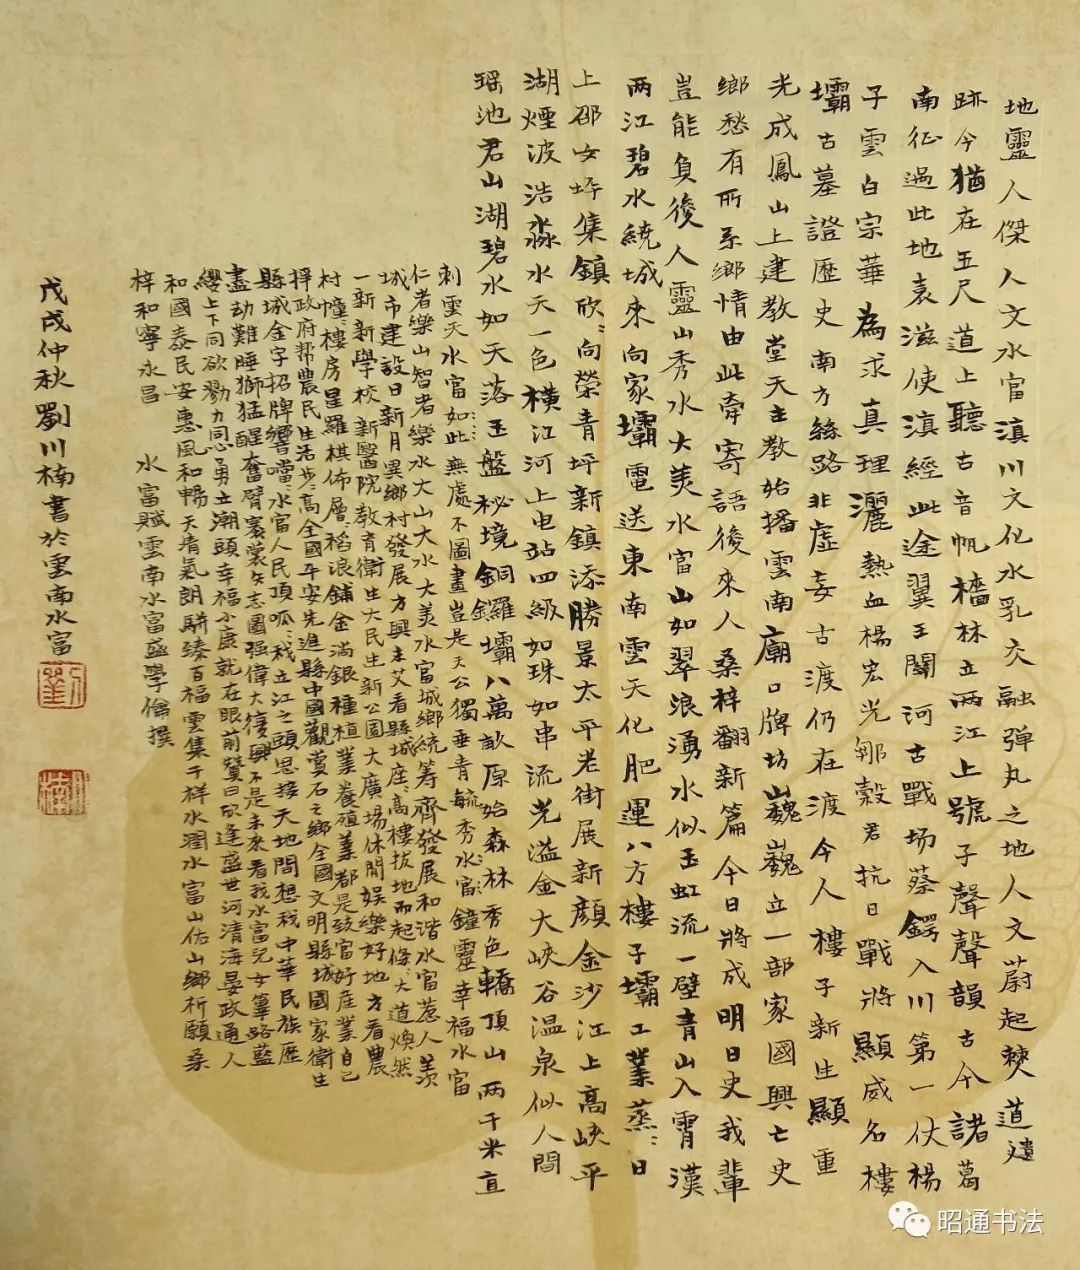 地靈人傑人文水富滇川文化水乳交融彈丸之地人文蔚起僰道遺
跡今猶在五尺道上聽古音帆檣林立两江上號子聲聲韻古今諸葛
南征過此地袁滋使滇經此途翼王闈河古戰场蔡鍔入川第一仗楊
子雲白宗華為求真理灑熱血楊宏光鄒毅君抗日戰將顯威名樓
壩古墓證歷史南方絲路非虛妄古渡仍在渡今人樓子新生顯重
光成鳳山上建教堂天主教始播雲南廟口牌坊巍巍立一部家國興亡史
鄉愁有所系鄉情由此牽寄語後來人桑梓翻新篇今日將成明日史我輩
豈能負後人靈山秀水大美水富山如翠浪湧水似玉虹流一壁青山入霄漢
两江碧水繞城來向家壩電送東南雲天化肥運八方樓子壩工業蒸:日
上邵女坪集鎮欣:向榮青坪新鎮添勝景太平老街展新顔金沙江上高峡平
湖煙波浩淼水天一色横江河上电站四級如珠如串流光溢金大峡谷温泉似人間
瑶池君山湖碧水如天落玉盤秘境銅鑼壩八萬畝原始森林秀色轎頂山两千米直
刺雲天水富如此無處不圖畫豈是天公獨垂青毓秀水富:鐘靈幸福水富
仁者樂山智者樂水大山大水大美水富城鄉統筹齊發展和谐水富惹人羡
城市建設日新月異鄉村發展方興未艾看縣城座:高樓拔地而起條:大道焕然
一新新學校新醫院教育衛生大民生新公園大廣場休閒娱樂好地方看農
村幢:樓房星羅棋佈層:稻浪鋪金淌銀種植業養殖業都是致富好産業自己
擇政府帮農民生活步:高全國平安先進縣中國觀賞石之鄉全國文明縣城國家衛生
縣城金字招牌響噹:水富人民頂呱:我立江之頭思接天地間想我中華民族歷
盡劫難睡獅猛醒奮臂裹裳矢志國强偉大復興不是未來看我水富兒女篳路藍
縷上下同欲勠力同心勇立潮頭幸福小康就在眼前贊曰欣逢盛世河清海晏政通人
和國泰民安惠風和暢天清氣朗駢臻百福雲集千祥水潤水富山佑山鄉祈願桑
梓和寧永昌 水富賦雲南水富盛學倫撰
戊戌仲秋劉川楠書於雲南水富
昭通书法